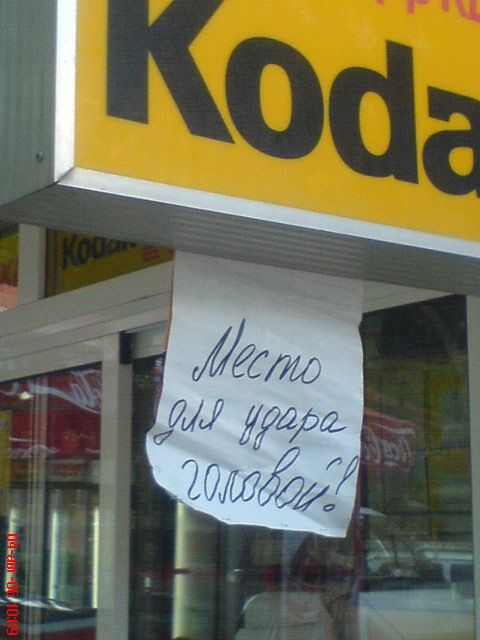 Koda
Kodak
Место
для удара
головой!